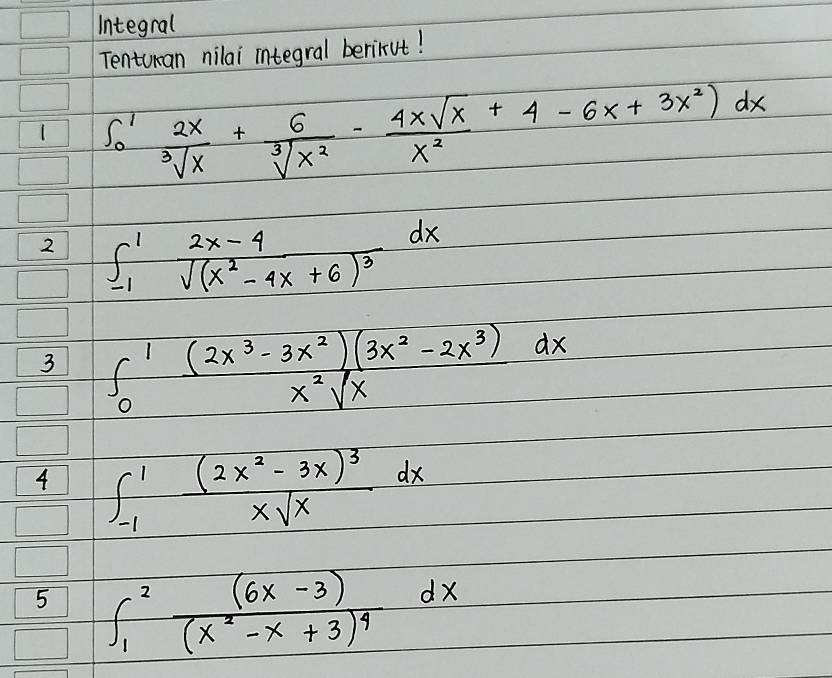 Integral
Tentukan nilai integral berikut!
1 ∫₀¹ 2x/∛x + 6/∛x² - 4x√x/x² + 4 - 6x + 3x²) dx
2 ∫₋₁¹ (2x - 4)/√(x² - 4x + 6)³ dx
3 ∫₀¹ (2x³ - 3x²)(3x² - 2x³)/(x²√x) dx
4 ∫₋₁¹ (2x² - 3x)³/(x√x) dx
5 ∫₁² (6x - 3)/(x² - x + 3)⁴ dx